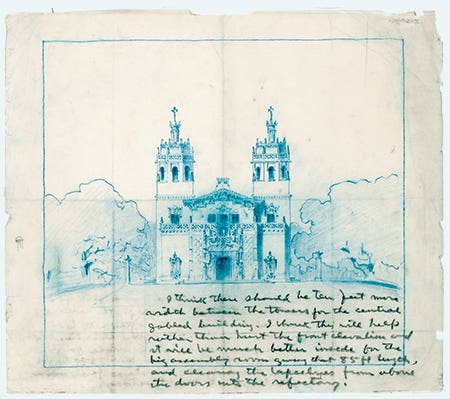 I think there should be ten feet more
width between the towers for the central
gabled building. I think this will help
rather than hurt the front elevation and
it will be much better inside for the
big assembly room giving that 85 ft length,
and clearing the tapestries from above
the doors into the refectory.